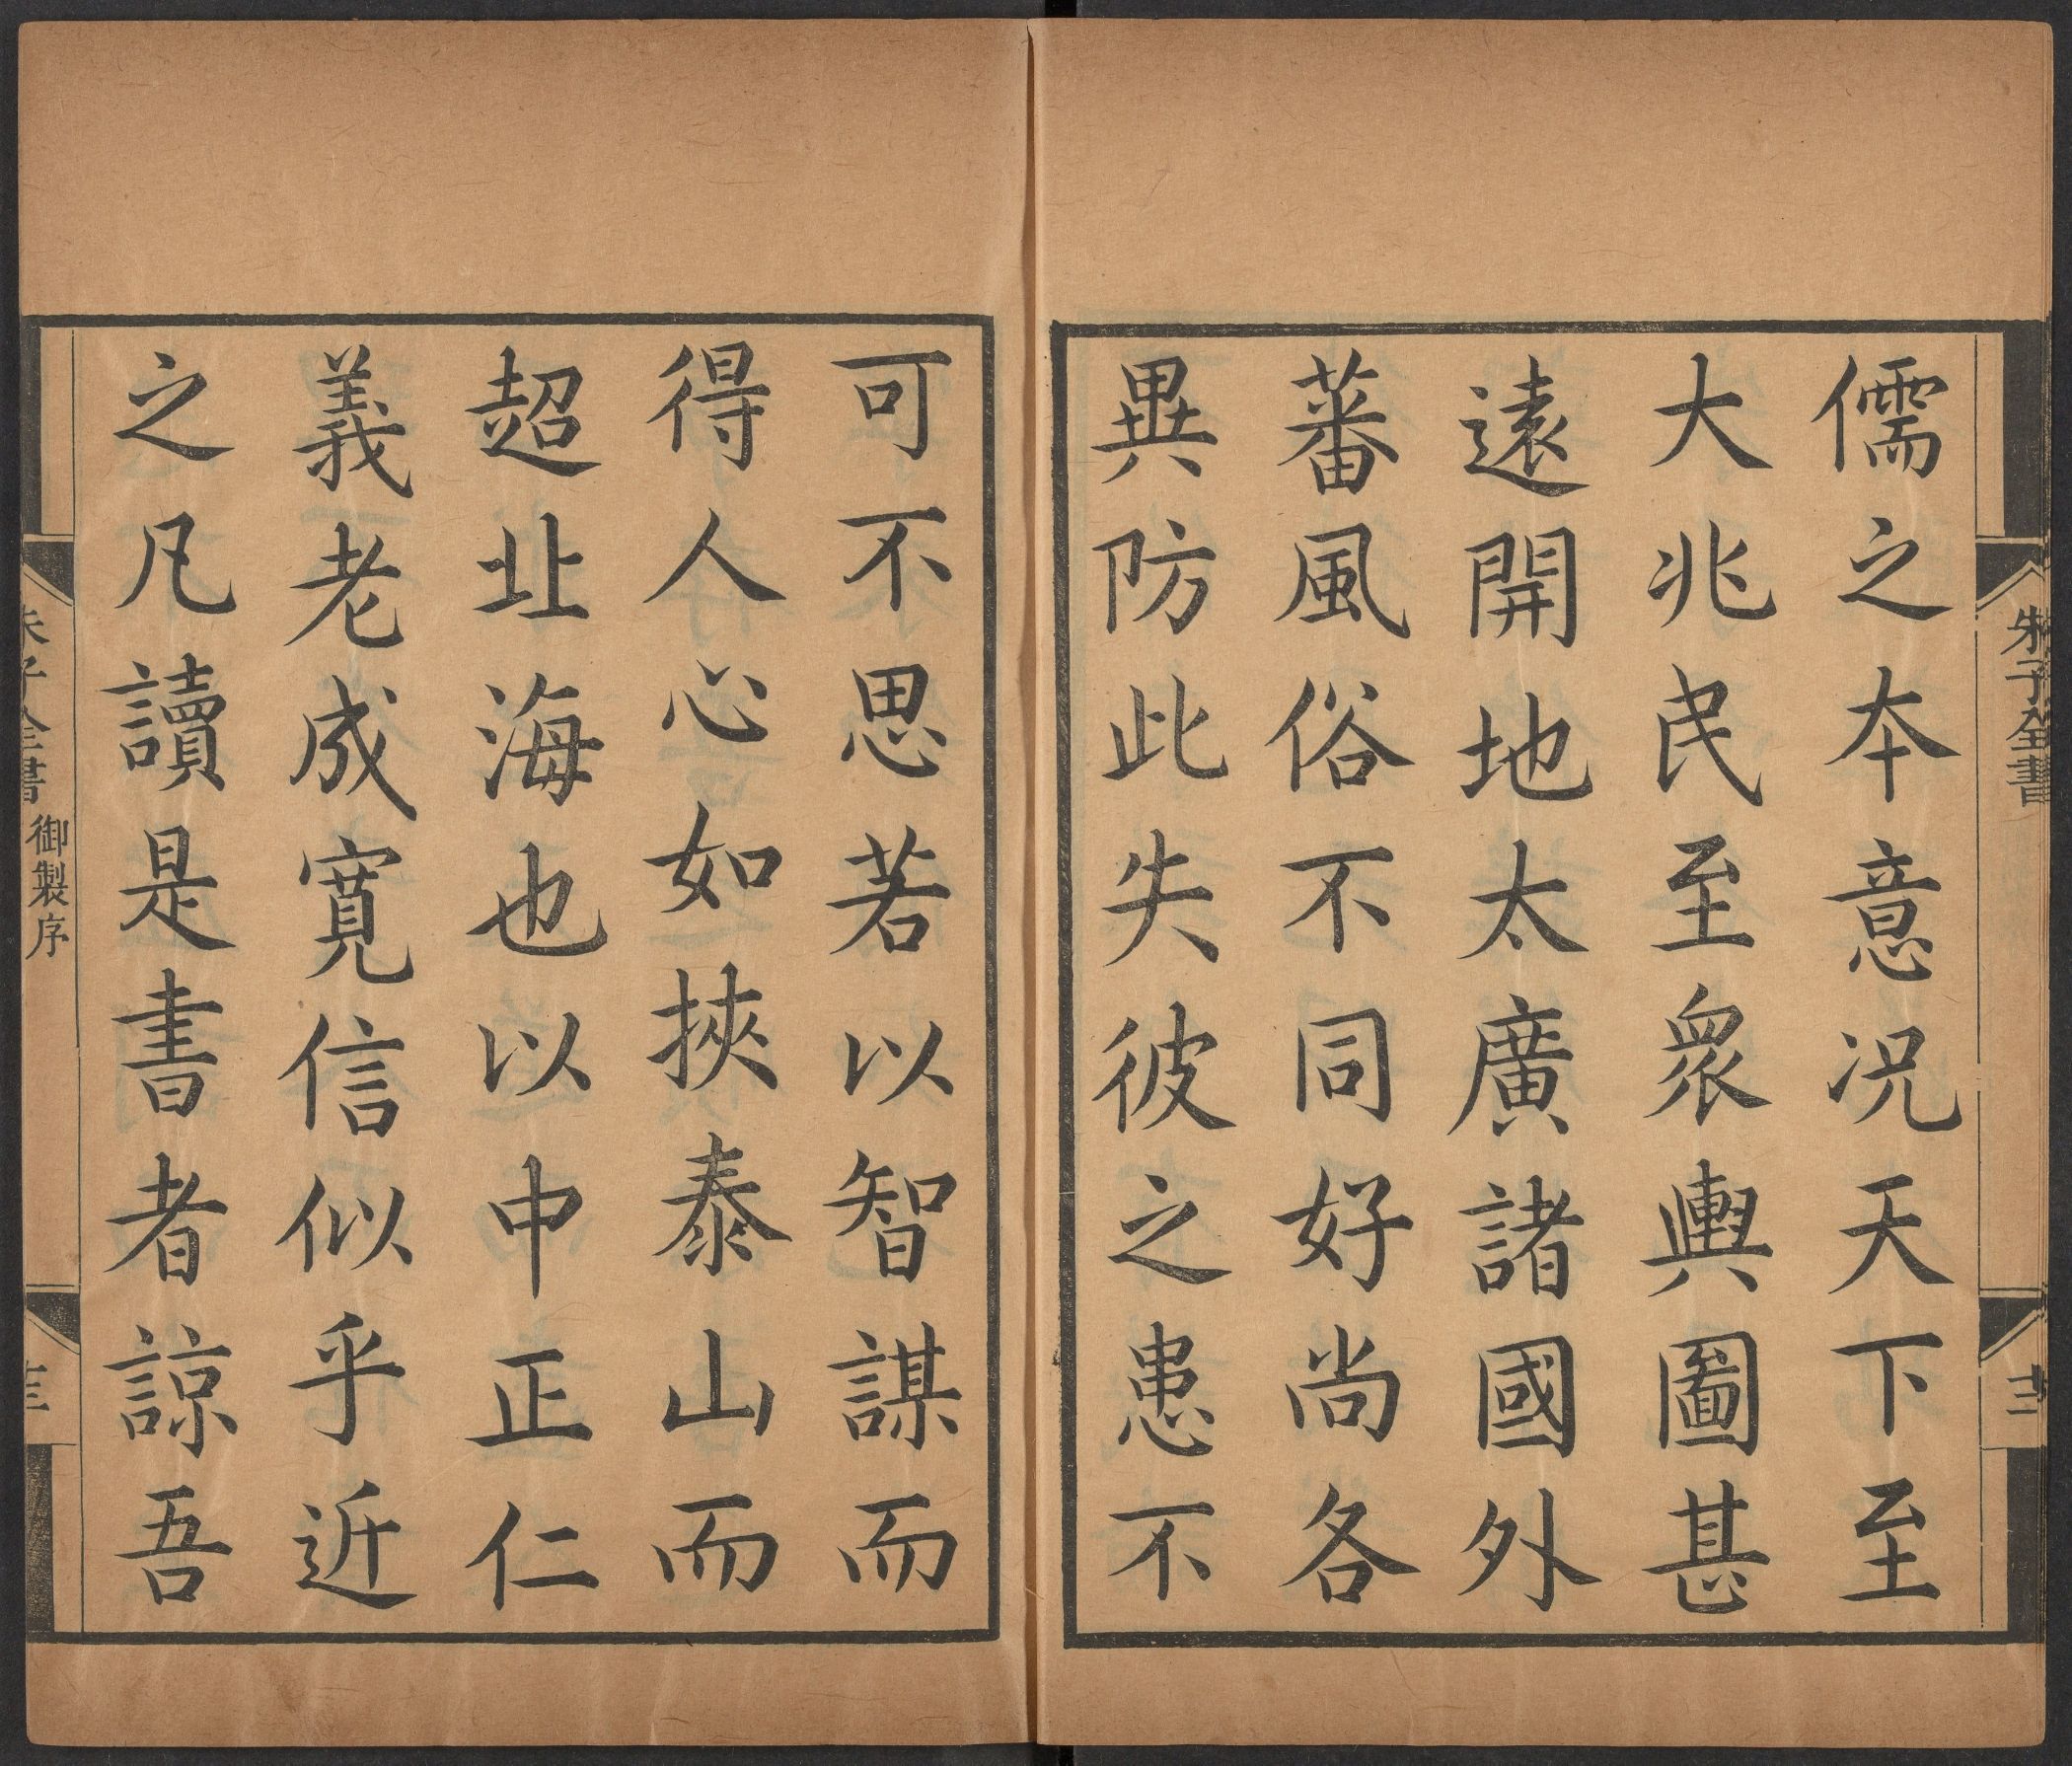 朱子全書
十二
儒之本意况天下至
大兆民至衆輿圖甚
遠開地太廣諸國外
蕃風俗不同好尚各
異防此失彼之患不
可不思若以智謀而
得人心如挾泰山而
超北海也以中正仁
義老成寬信似乎近
之凡讀是書者諒吾
朱子全書 御製序